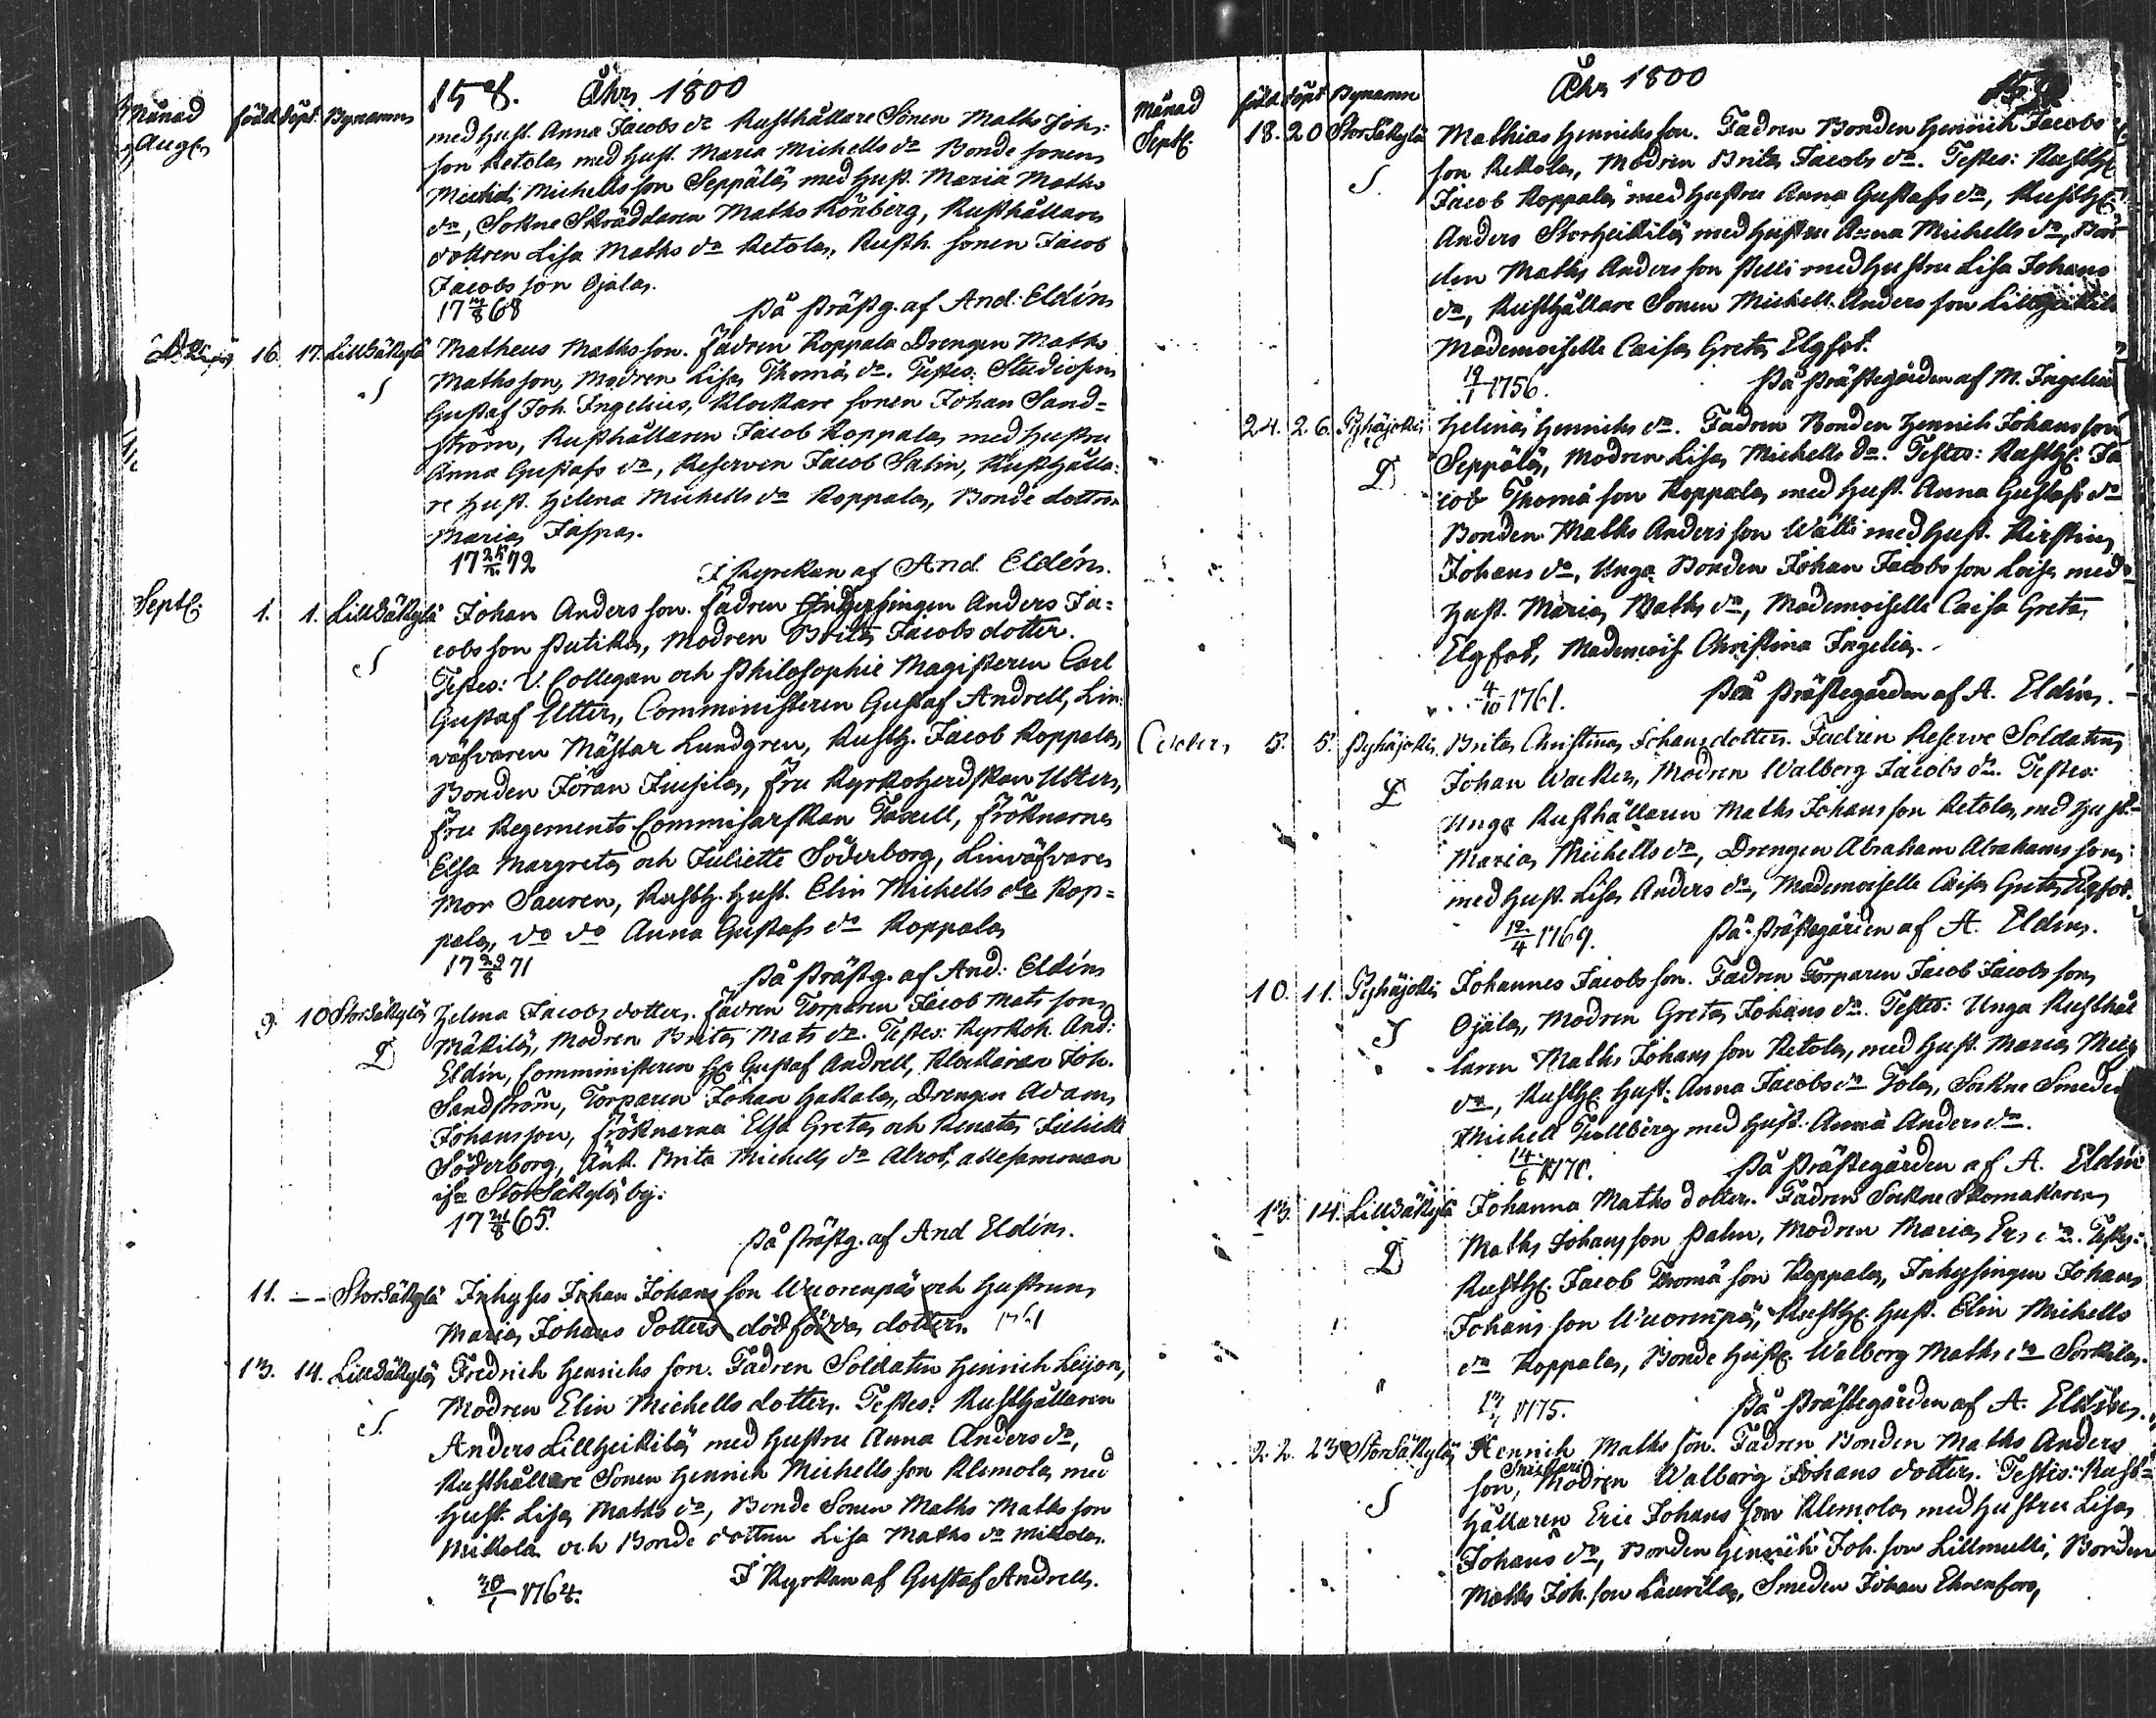 158. Åhr 1800
Månad född döpt. Bynamn
Aug:
med hust. Anna Jacobs dr Rusthållare Sonen Maths Joh:
son Ketola med hust. Maria Michells dr Bonde sonen
Michel Michells son Seppälä med hust. Maria Maths
dr, Sokne Skräddaren Maths Rönberg, Rusthållare
dottren Lisa Maths dr Ketola, Rusth. sonen Jacob
Jacobs son Ojala.
17 /8 68 På Prästg. af And: Eldén
16. 17. LillSäkylä Matheus Maths son. Fadren Koppala Drengen Maths
S Maths son, Modren Lisa Thomas dr. Testes: Studiosen
Gustaf Joh. Ingelius, Klockare sonen Johan Sand=
ström, Rusthållaren Jacob Koppala, med hustru
Anna Gustafs dr, Reserven Jacob Salin, Rusthålla:
re hust. Helena Michells dr Koppala, Bonde dottren
Maria Jaspa.
17 72 I Kyrckan af And Eldén.
Sept: 1. 1. LillSäkylä Johan Anders son. Fadren Inhysingen Anders Ja=
S cobs son Putika, Modren Brita Jacobs dotter.
Testes: V. Collegan och Philosophie Magisteren Carl
Gustaf Utter, Comministeren Gustaf Andrell, Lin:
väfvaren Mästar Lundgren, Rusth. Jacob Koppala,
Bonden Jöran Jusila, Fru Kyrkoherdskan Utter,
Fru Regements Commisarskan Taxell, Fröknarne
Elsa Margreta och Juliette Söderborg, Linväfvare
Mor Sauren, Rusth. hust. Elin Michells dr Kop=
pala, do do Anna Gustafs dr Koppala
17 29/8 71 På Prästg. af And: Eldén
9. 10 StorSäkylä Helena Jacobs dotter. Fadren Torparen Jacob Mats son
D Mäkilä, Modren Brita Mats dr. Testes: Kyrkoh. And:
Eldén, Comministeren Hr Gustaf Andrell, Klockaren Joh.
Sandström, Torparen Johan Hakala, Drengen Adam
Johansson, Fröknarna Elsa Greta och Renata Juliette
Söderborg, Änk. Brita Michells dr Alrot, allesamman
ifr StorSäkylä by.
17 21/8 65. På Prästg. af And Eldén.
11. -- StorSäkylä Inhyses Johan Johans son Wuorenpä och hustruns
Maria Johans dotters dödfödda dotter. 1761
13. 14. LillSäkylä Fredrich Henrichs son. Fadren Soldaten Henrich Leijon,
S. Modren Elin Michells dotter. Testes: Rusthållaren
Anders Lillheikilä med hustru Anna Anders dr,
Rusthållare Sonen Henrich Michells son Klemola med
hust. Lisa Maths dr, Bonde Sonen Maths Maths son
Mikola och Bonde dottren Lisa Maths dr Mikola.
1764. I Kyrkan af Gustaf Andrell.
Åhr 1800
Månad född döpt Bynamn
Sept: 18. 20 StorSäkylä Mathias Henrichs son. Fadren Bonden Henrich Jacobs
S. son Kekola, Modren Brita Jacobs dr. Testes: Rusth:
Jacob Koppala med hustru Anna Gustafs dr, Rusth:
Anders Storheikilä med hustru Anna Michells dr, Bon=
den Maths Anders son Pelli med hustru Lisa Johans
dr, Rusthållare Sonen Michell Anders son Lillheikilä
Mademoiselle Caisa Greta Elgfot.
19/1 1756. På Prästegården af M. Ingelius
24. 26. Pyhäjoki Helena Henrichs dr. Fadren Bonden Henrich Johans son
D Seppälä, Modren Lisa Michells dr. Testes: Rusth: Ja
cob Thomä son Koppala med hust. Anna Gustafs dr
Bonden Maths Anders son Wälli med hust. Kirstin
Johans dr, Unga Bonden Johan Jacobs son Loisa med
hust. Maria Maths dr, Mademoiselle Caisa Greta
Elgfot, Mademois Christina Ingelia.
4/10 1761. På Prästegården af A. Eldén.
October 5. 5. Pyhäjoki Brita Christina Johans dotter. Fadren Reserve Soldaten
D Johan Wacker, Modren Walberg Jacobs dr. Testes:
Unga Rusthållaren Maths Johans son Ketola, med hust.
Maria Michells dr, Drengen Abraham Abrahams son
med hust. Lisa Anders dr, Mademoiselle Caisa Greta Elgfot.
12/4 1769. På Prästegården af A. Eldén.
10. 11. Pyhäjoki Johannes Jacobs son. Fadren Torparen Jacob Jacobs son
S Ojala, Modren Greta Johans dr. Testes: Unga Rusthål
laren Maths Johans son Ketola, med hust. Maria Mich
dr, Rusth: hust: Anna Jacobs dr Tola, Sokne Smeden
Michell Tullberg med hust. Anna Anders dr.
14/6 177 . På Prästegården af A. Eldén
13. 14. LillSäkylä Johanna Maths dotter. Fadren Sokne Skomakaren
D Maths Johans son Palm, Modren Maria Ers dr. Testes:
Rusth: Jacob Thomä son Koppala, Inhysingen Johan
Johans son Wuorenpä, Rusth: hust. Elin Michells
dr Koppala, Bonde hust. Walborg Maths dr Sorkila.
1775. På Prästegården af A. Eldén.
22. 23 StorSäkylä Henrich Maths son. Fadren Bonden Maths Anders
S son, Modren Walborg Johans dotter. Testes: Rust=
hållaren Eric Johans son Klemola med hustru Lisa
Johans dr, Bonden Henrich Joh. son Lillmulli, Bonden
Maths Joh. son Laurila, Smeden Johan Ehrenfors,